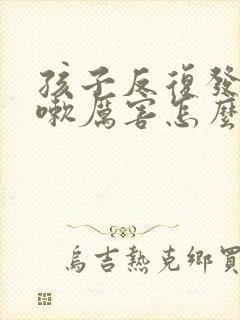 孩子反復發
嗽厲害怎麼
烏吉熱克鄉買